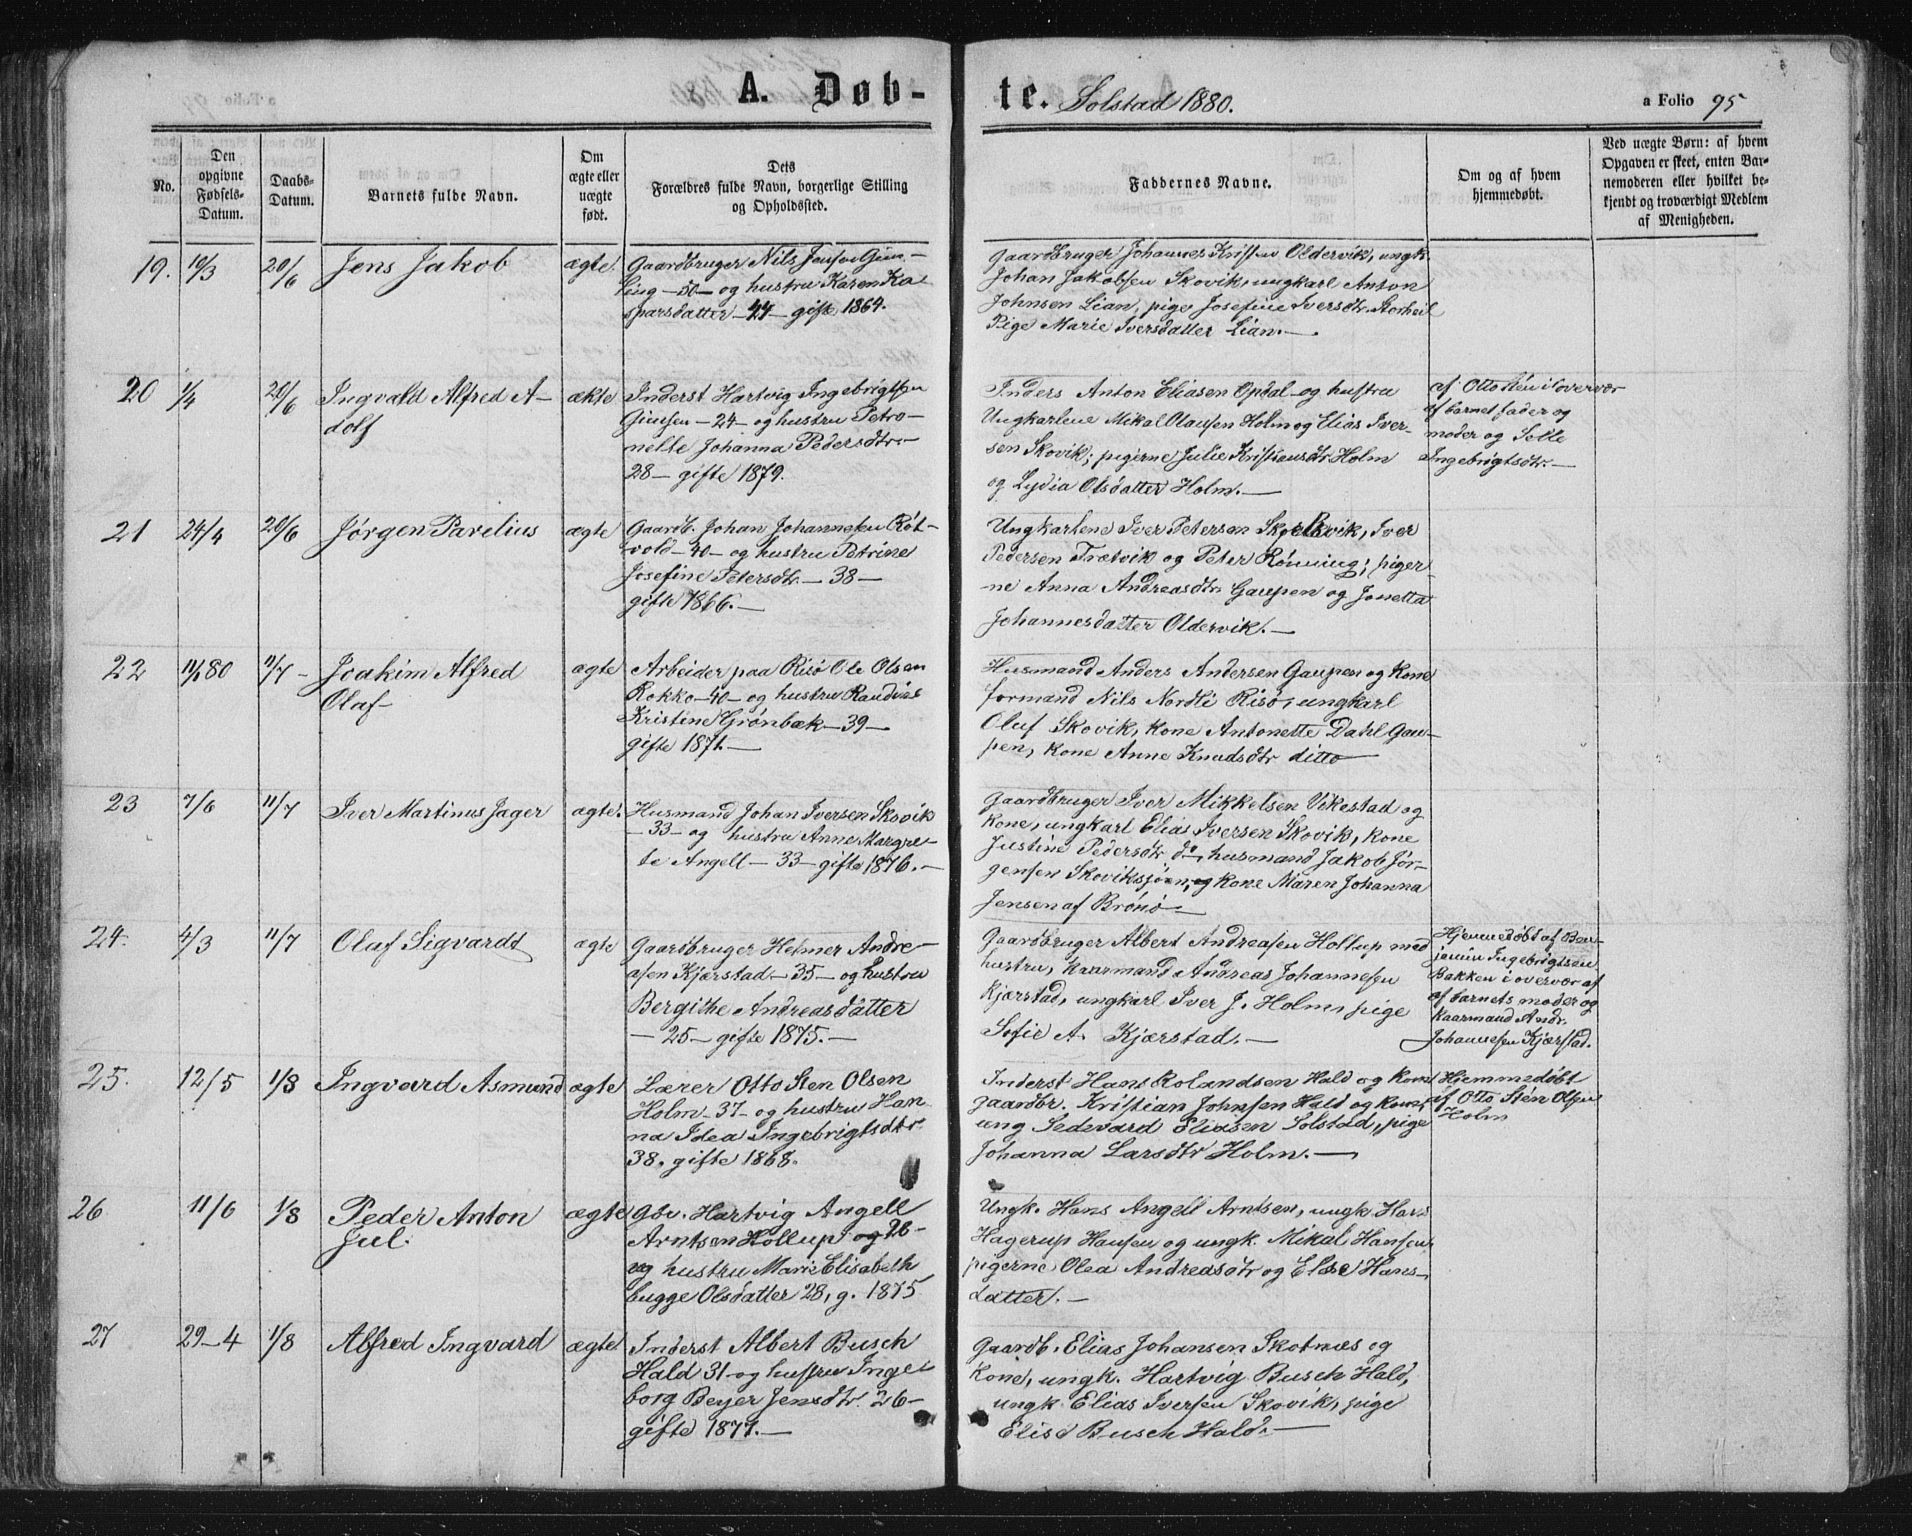 A. Døb-
te. Solstad 1880.
a Folio 95
No.
Den
opgivne
Fødsels-
Datum.
Daabs-
Datum.
Barnets fulde Navn.
Om
ægte eller
uægte
født.
Dets
Forældres fulde Navn, borgerlige Stilling
og Opholdssted.
Faddernes Navne.
Om og af hvem
hjemmedøbt.
Ved uægte Børn: af hvem
Opgaven er skeet, enten Bar-
nemoderen eller hvilket be-
kjendt og troværdigt Medlem
af Menigheden.
19. 10/3 20/6 Jens Jakob ægte.
Gaardbruger Nils Jensen Gim-
ling - 50 - og hustru Karen Ka
sparsdatter - 44 - gifte 1864.
Gaardbruger Johannes Kristen Oldervik, ungk.
Johan Jakobsen Skovik, ungkarl Anton
Johnsen Lian, pige Josefine Iversdtr. Storheil
Pige Marie Iversdatter Lian. -
20 1/4 20/6 Ingvald Alfred A-
dolf
ækte
Inderst Hartvig Ingebrigtsen
- 24 - og hustru Petro-
nelle Johanna Pedersdtr. -
28 - gifte 1879.
Inders Anton Eliasen Opdal og hustru
Ungkarlene Mikal Olausen Holm og Elias Iver-
sen Skovik; pigerne Julie Kristiansdtr. Holm
og Lydia Olsdatter Holm. -
af Otto Sten i overvær
af barnet fader og
moder og
Ingebrigtsdtr. -
21 24/4 20/6 Jørgen Parelius ægte
Gaardb. Johan Johannesen Røt-
vold - 40 - og hustru Petrine
Josefine Petersdtr. - 38 -
gifte 1866. -
Ungkarlene Iver Petersen Skjelvik, Iver
Pedersen Trætvik og Peter Rønning; piger-
ne Anna Andreasdtr. Gaupen og Jonetta
Johannesdatter Oldervik. -
22 11/1 80 11/7 - Joakim Alfred
Olaf -
ægte
Arbeider paa Risø Ole Olsen
Rokko - 40 - og hustru Randine
Kristine Grønbæk - 39 -
gifte 1871 -
Husmand Anders Andersen Gaupen og kone
formand Nils Nordli Risø, ungkarl
Oluf Skovik, kone Antonette Dahl Gau-
pen, kone Anne Knudsdtr ditto -
23 7/6 11/7 Iver Martinus Jager ægte.
Husmand Johan Iversen Skovik
- 33 - og hustru Anne Margre-
te Angell - 33 - gifte 1876. -
Gaardbruger Iver Mikkelsen Vikestad og
kone, ungkarl Elias Iversen Skovik, kone
Justine Pedersdtr do, husmand Jakob Jør-
gensen Skoviksjøen, og kone Maren Johanna
Jensen af Brønø -
24. 4/3 11/7 Olaf Sigvardt ægte
Gaardbruger Helmer Andre-
asen Kjærstad - 35 - og hustru
Bergithe Andreasdatter
- 25 - gifte 1875. -
Gaardbruger Albert Andreasen Hollup med
hustru, kaarmand Andreas Johannesen
Kjærstad, ungkarl Iver J. Holm, pige
Sofie A. Kjærstad. -
Hjemmedøbt af Ben-
jamin Ingebrigtsen
Bakken i overvær af
af barnets moder og
kaarmand Andr.
Johannesen Kjærstad.
25. 12/5 1/8 Ingvard Asmund ægte
Lærer Otto Sten Olsen
Holm - 37 - og hustru Han
na Idea Ingebrigtsdtr.
38, gifte 1868.
Inderst Hans Rolandsen Hald og kone
gaardbr. Kristian Johnsen Hald og kone,
ung Sedevard Eliasen Solstad, pige
Johanna Larsdtr Holm. -
Hjemmedøbt
af Otto Sten Olsen
Holm
26 11/6 1/8 Peder Anton
Jul.
ægte
Gbr. Hartvig Angell
Arntsen Hollup og 26 -
og hustru Marie Elisabeth
bugge Olsdatter 28, g. 1875
Ungk. Hans Angell Arntsen, ungk. Hans
Hagerup Hansen og ungk. Mikal Hansen,
pigerne Olea Andreasdtr og Else Hans-
datter. -
27 29-4 1/8 Alfred Ingvard ægte
Inderst Albert Busch
Hald 31 - og hustru Inge
borg Beyer Jensdtr. 26 -
gifte 1877. -
Gaardb. Elias Johansen Skotnæs og
kone, ungk. Hartvig Busch Hald,
ungk. Elias Iversen Skovik, pige
Elise Busch Hald. -